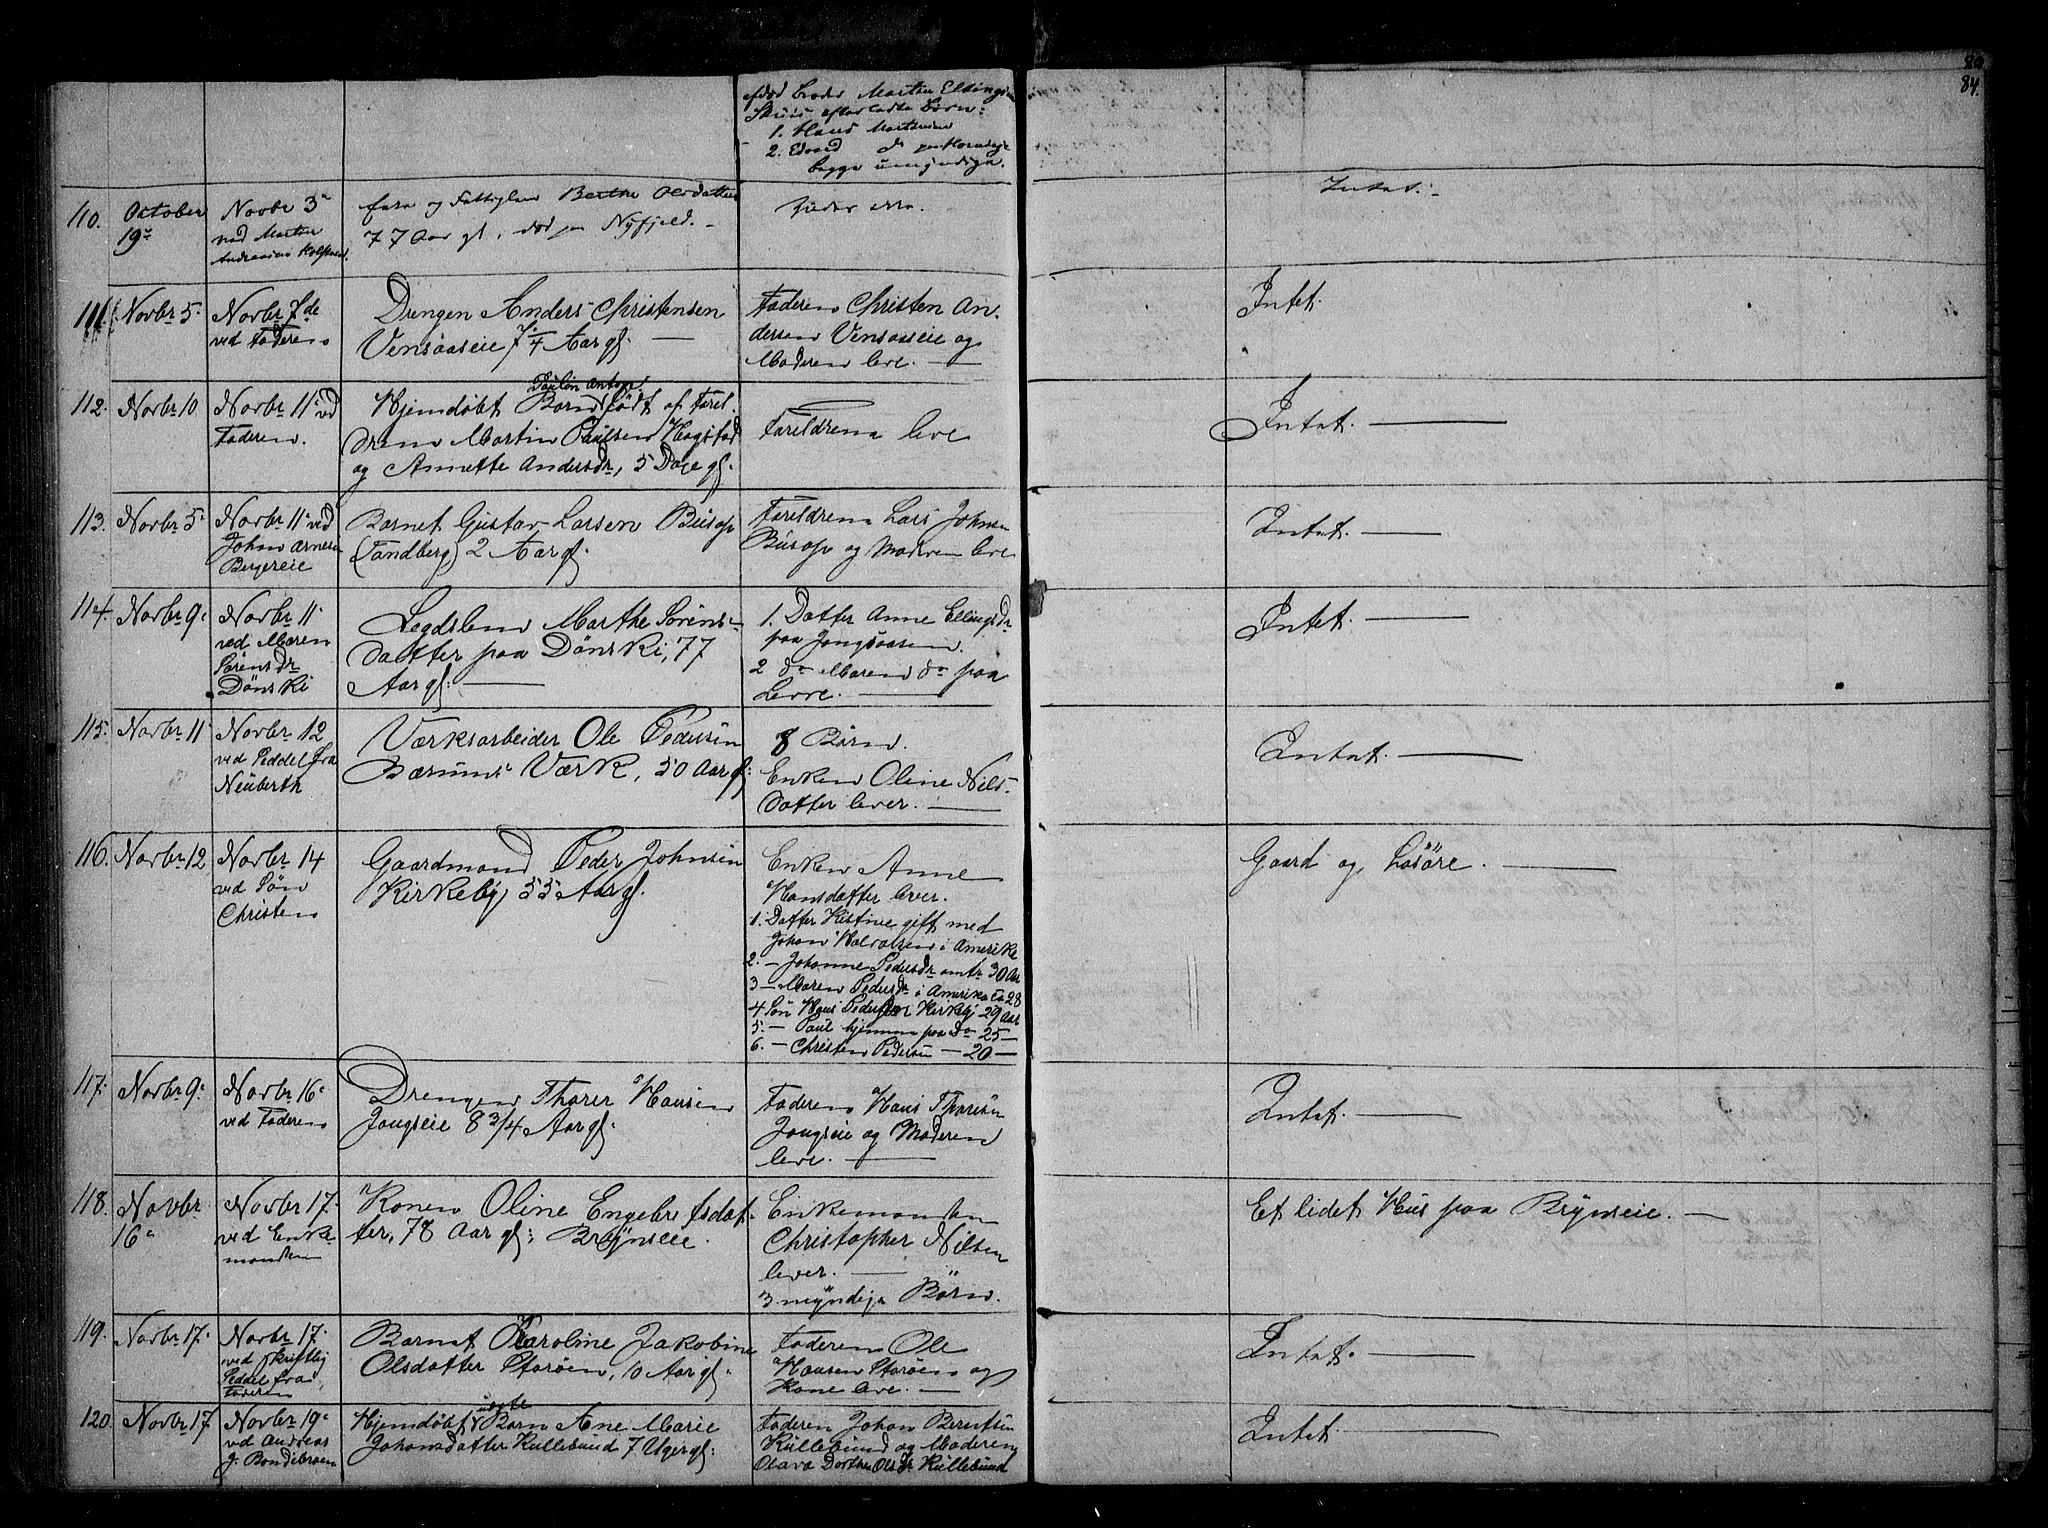 84.
afdød Broder Martin Ellings
efterladte Børn:
1. Hans Martinsen
2. Edvard do paa
begge umyndige.
110. October 19de
Novbr 3de
ved Martin
Andreasen
og Fattiglem Berthe Olsdatter
77 Aar gl. død paa Nyfjeld.
Intet.
111. Novbr 5.
Novbr 7de
ved Faderen
Drengen Anders Christensen
Vensaaseie 7/4 Aar gl.
Faderen Christen An-
dersen Vensaaseie og
Moderen leve.
Intet.
112. Novbr 10
Novbr 11 ved
Faderen.
Paulin Anton
Hjemdøbt Barn født af Forel-
drene Martin Paulsen Hagstad
og Annette Andersdr, 5 Dage gl.
Foreldrene leve
Intet.
113. Novbr 5
Novbr 11 ved
Johan Arnesen
Bergereie
Barnet Gustav Larsen Büsop
(Tandberg) 2 Aar gl.
Foreldrene Lars Johnsen
Büsop og Moderen leve
Intet.
114. Novbr 9
Novbr 11
ved Maren
Sørensdr
Dønski
Legdslem Marthe Sørens-
datter paa Dønski, 77
Aar gl.
1. Datter Anne Ellingsdr
paa Jongsaasen.
2 do Maren do paa
Levre.
Intet.
115. Novbr 11
Novbr 12
ved Seddel fra
Neuberth
Værksarbeider Ole Pedersen
Bærums Værk, 50 Aar gl.
8 Børn.
Enken Oline Nils-
datter lever.
Intet.
116. Novbr 12
Novbr 14
ved Søn
Christen
Gaardmand Peder Johnsen
Kirkeby 55 Aar gl.
Enken Anne
Hansdatter lever.
1. Datter Kistine gift med
Johan Halvorsen i Amerika
2. — Johanne Pedersdr omtr 30 Aar
3 — Maren Pedersdr i Amerika ca 28
4 Søn Hans Pedersen Kirkeby 29 Aar
5. — Paul hjemme paa do 25 —
6. — Christen Pedersen — 20 —
Gaard og Løsøre.
117. Novbr 9
Novbr 16
ved Faderen
Drengen Thorer Hansen
Jongseie 8 3/4 Aar gl.
Faderen Hans Thoresen
Jongseie og Moderen
leve.
Intet.
118. Novbr
16
Novbr 17.
ved Enke-
manden
Konen Oline Engebretsdat-
ter, 78 Aar gl. Brynseie.
Enkemanden
Christopher Nilsen
lever.
3 myndige Børn.
Et lidet Hus paa Brynseie.
119. Novbr 17.
Novbr 17.
ved skriftlig
Seddel fra
Faderen
Barnet Karoline Jakobine
Olsdatter Storøen, 10 Aar gl.
Faderen Ole
Hansen Storøen og
Kone leve.
Intet.
120. Novbr 17
Novbr 19
ved Andreas
J. Bondebraaten
uægte
Hjemdøbt Barn Ane Marie
Johansdatter Kullebund 7 Uger gl.
Faderen Johan Berntsen
Kullebund og Moderen
Olava Dorthea Olsdr Kullebund
Intet.